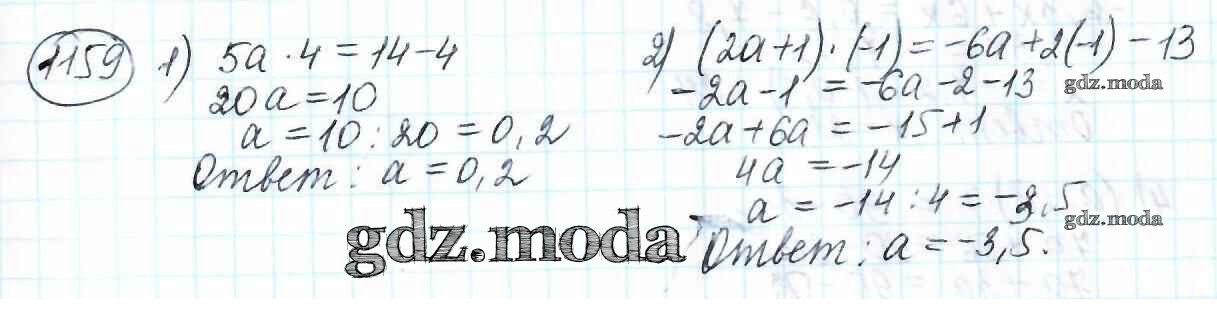 1159 1) 5a · 4 = 14 - 4
20a = 10
a = 10 : 20 = 0,2
Ответ: a = 0,2
2) (2a+1) · (-1) = -6a + 2(-1) - 13
-2a - 1 = -6a - 2 - 13
gdz.moda
-2a + 6a = -15 + 1
4a = -14
a = -14 : 4 = -3,5
gdz.moda
Ответ: a = -3,5.
gdz.moda